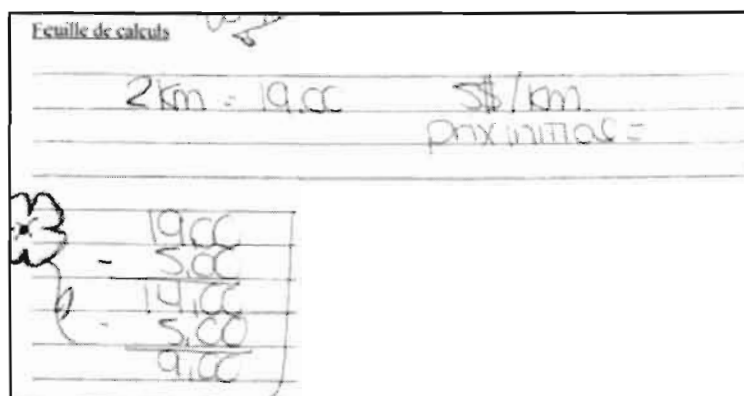 Feuille de calculs
2 km = 19.00 5$/km
prix initial =
19.00
- 5.00
14.00
- 5.00
9.00